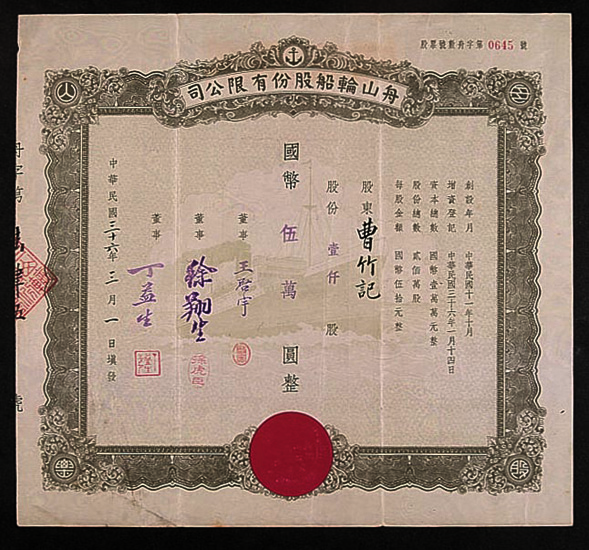 股票號數舟字第0645號
舟山輪船股份有限公司
創設年月 中華民國十一年十月
增資登記 中華民國三十六年一月十四日
資本總數 國幣壹萬萬元整
股份總數 貳佰萬股
每股金額 國幣伍拾元整
股東 曹竹記
股份 壹仟 股
國幣 伍萬 圓整
董事 王啓宇
董事 徐翔生
董事 丁益生
中華民國三十六年三月一日填發